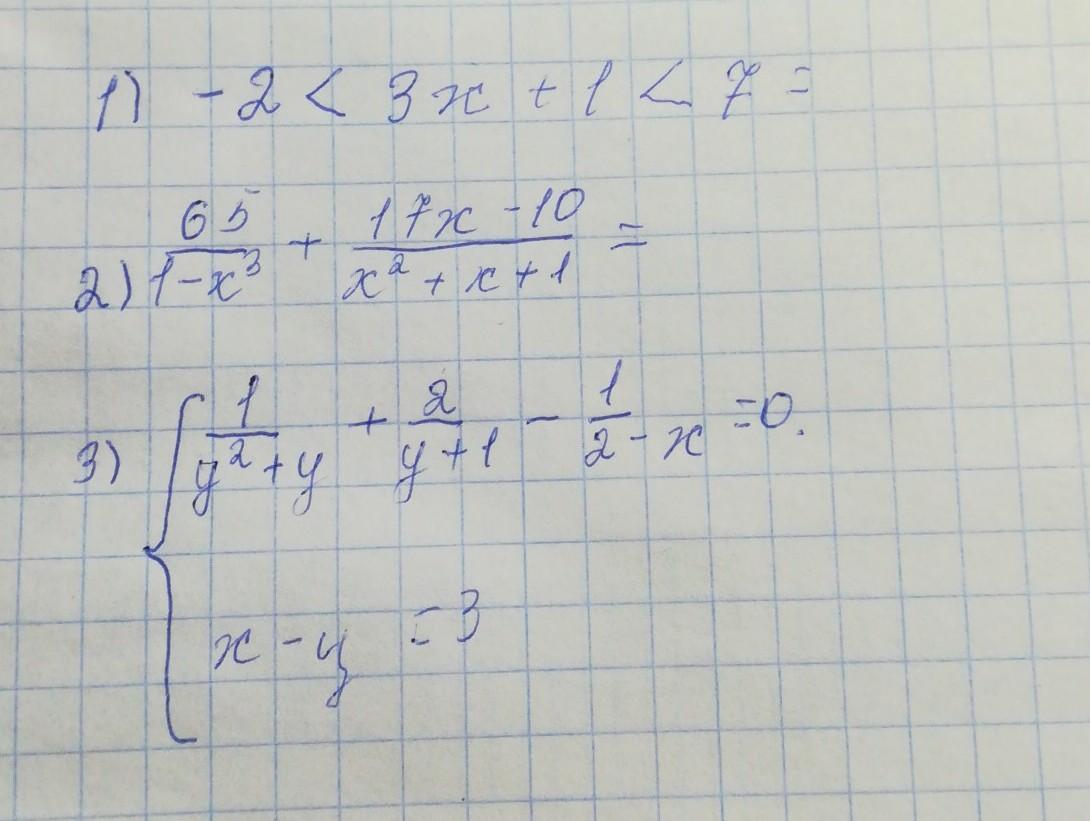 1) -2 < 3x + 1 < 7 =
2) 65/(1-x³) + (17x-10)/(x²+x+1) =
3) { 1/(y²+y) + 2/(y+1) - 1/(2-x) =0.
x - y = 3